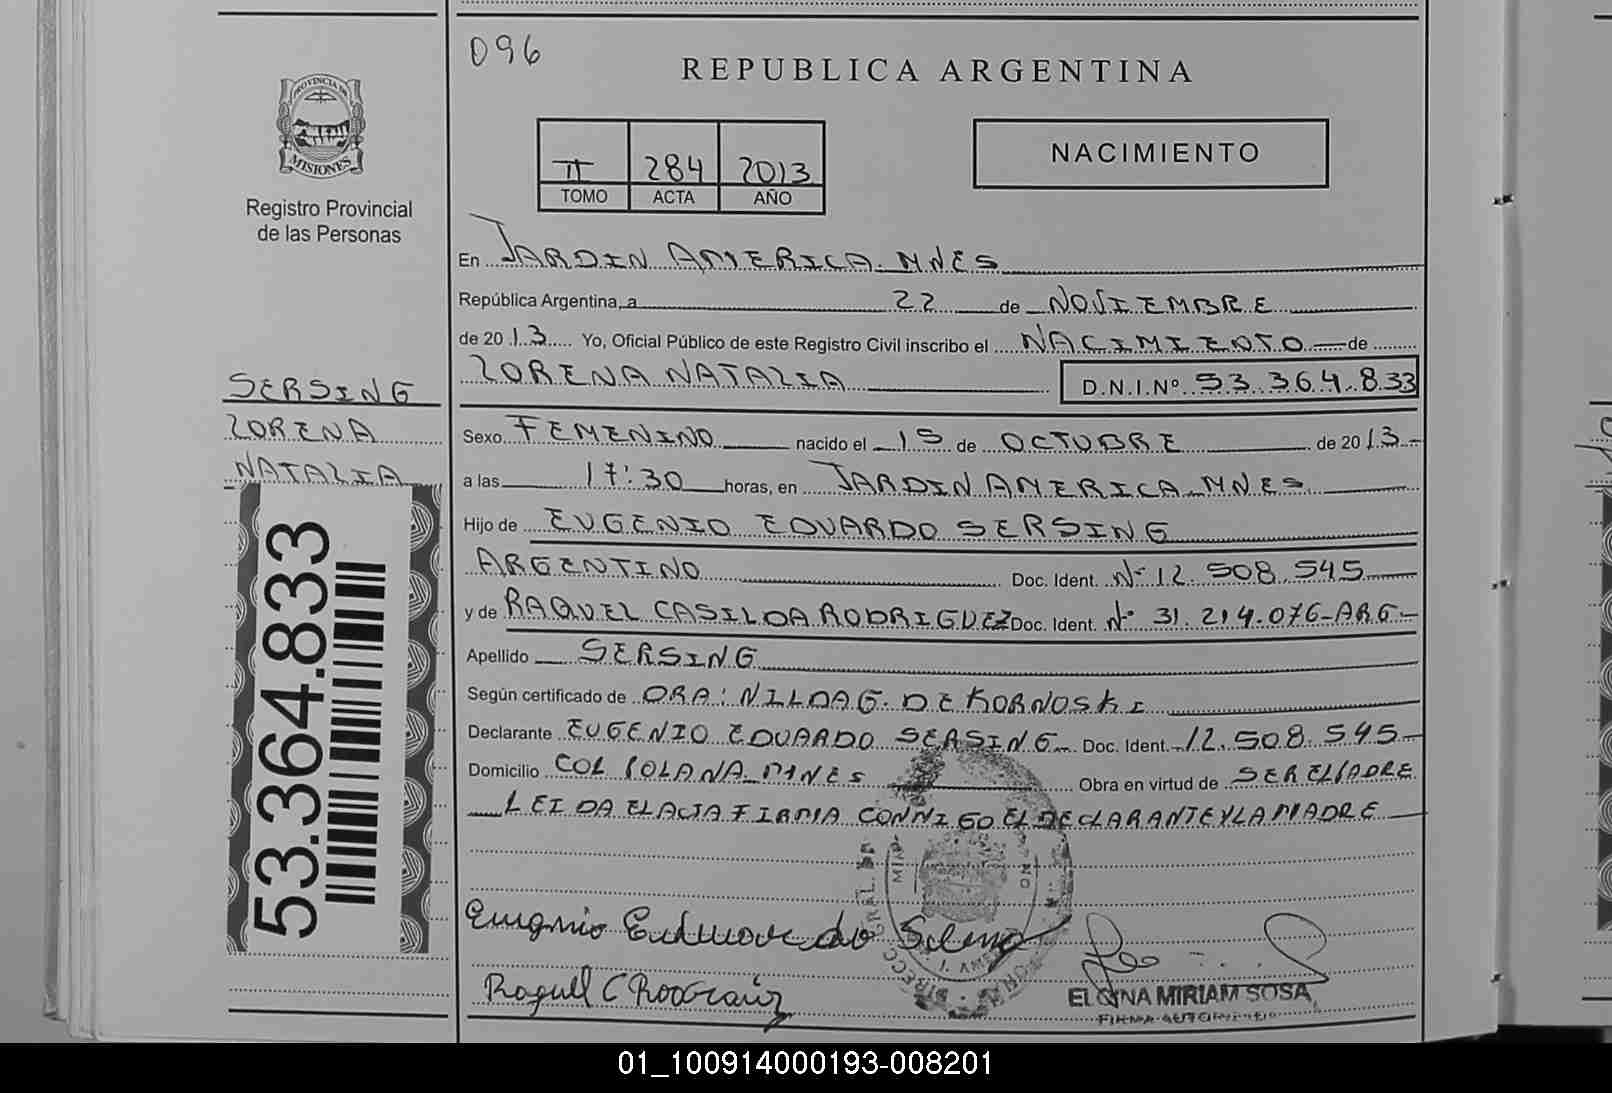 096
REPUBLICA ARGENTINA
PROVINCIA DE
MISIONES
Registro Provincial
de las Personas
II 284 2013
TOMO ACTA AÑO
NACIMIENTO
En JARDIN AMERICA. MNES
República Argentina, a 22 de NOVIEMBRE
de 2013 Yo, Oficial Público de este Registro Civil inscribo el NACIMIENTO de
LORENA NATALIA D.N.I.Nº 53.364.833
SERSING
LORENA
NATALIA
53.364.833
Sexo FEMENINO nacido el 15 de OCTUBRE de 2013
a las 17:30 horas, en JARDIN AMERICA MNES
Hijo de EUGENIO EDUARDO SERSING
ARGENTINO Doc. Ident. Nº 12.508.545
y de RAQUEL CASILDA RODRIGUEZ Doc. Ident. Nº 31.214.076-ARG-
Apellido SERSING
Según certificado de DRA: NILDA G. DE KORNOSKI
Declarante EUGENIO EDUARDO SERSING Doc. Ident. 12.508.545
Domicilio COL POLANA MNES Obra en virtud de SER EL PADRE
LEIDA EL ACTA FIRMA CONMIGO EL DECLARANTE Y LA MADRE
Eugenio Eduardo
Raquel C Rodriguez
ELGINA MIRIAM SOSA
01_100914000193-008201